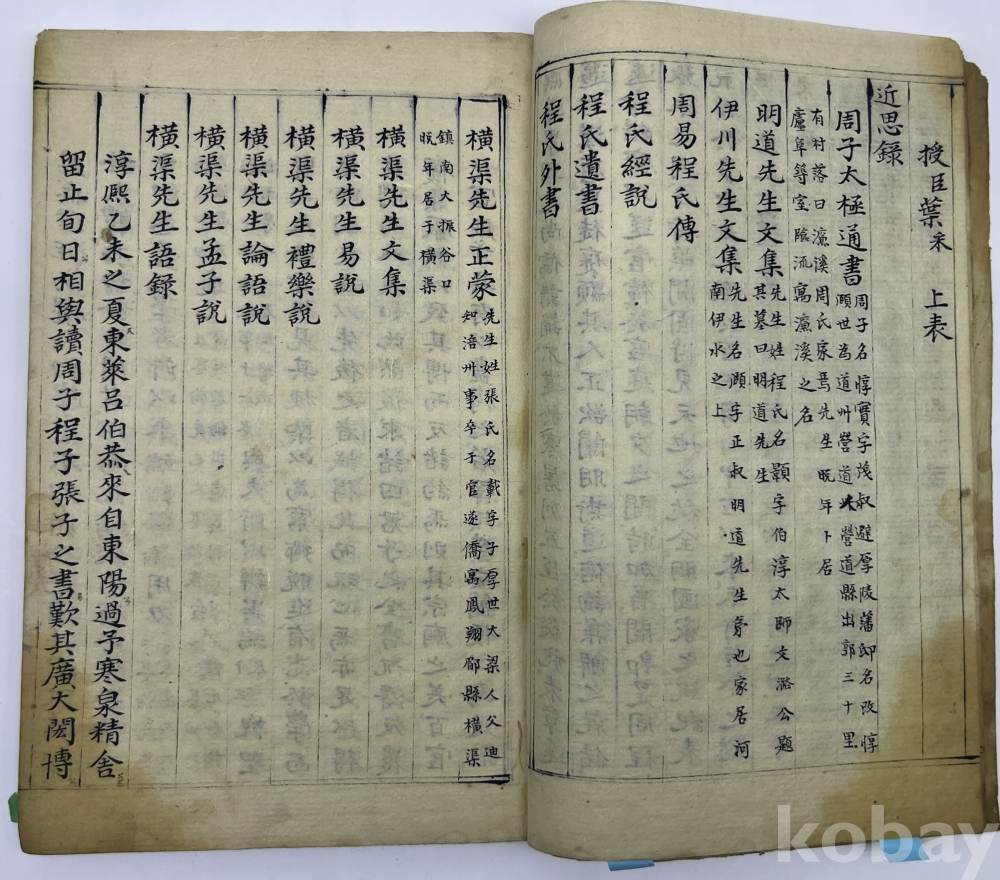 授臣葉采 上表
近思錄
周子太極通書 周子名惇實字茂叔避厚陵藩邸名改惇
頤世為道州營道人營道縣出郭三十里
有村落曰濂溪周氏家焉先生晩年卜居
廬阜築室臨流寓濂溪之名
明道先生文集 先生姓程氏名顥字伯淳太師文潞公題
其墓曰明道先生
伊川先生文集 先生名頤字正叔明道先生弟也家居河
南伊水之上
周易程氏傳
程氏經說
程氏遺書
程氏外書
橫渠先生正蒙 先生姓張氏名載字子厚世大梁人父迪
知涪州事卒于官遂僑寓鳳翔郿縣橫渠
鎮南大振谷口
晩年居于橫渠
橫渠先生文集
橫渠先生易說
橫渠先生禮樂說
橫渠先生論語說
橫渠先生孟子說
橫渠先生語錄
淳熙乙未之夏東萊呂伯恭來自東陽過予寒泉精舍
留止旬日相與讀周子程子張子之書歎其廣大閎博
kobay